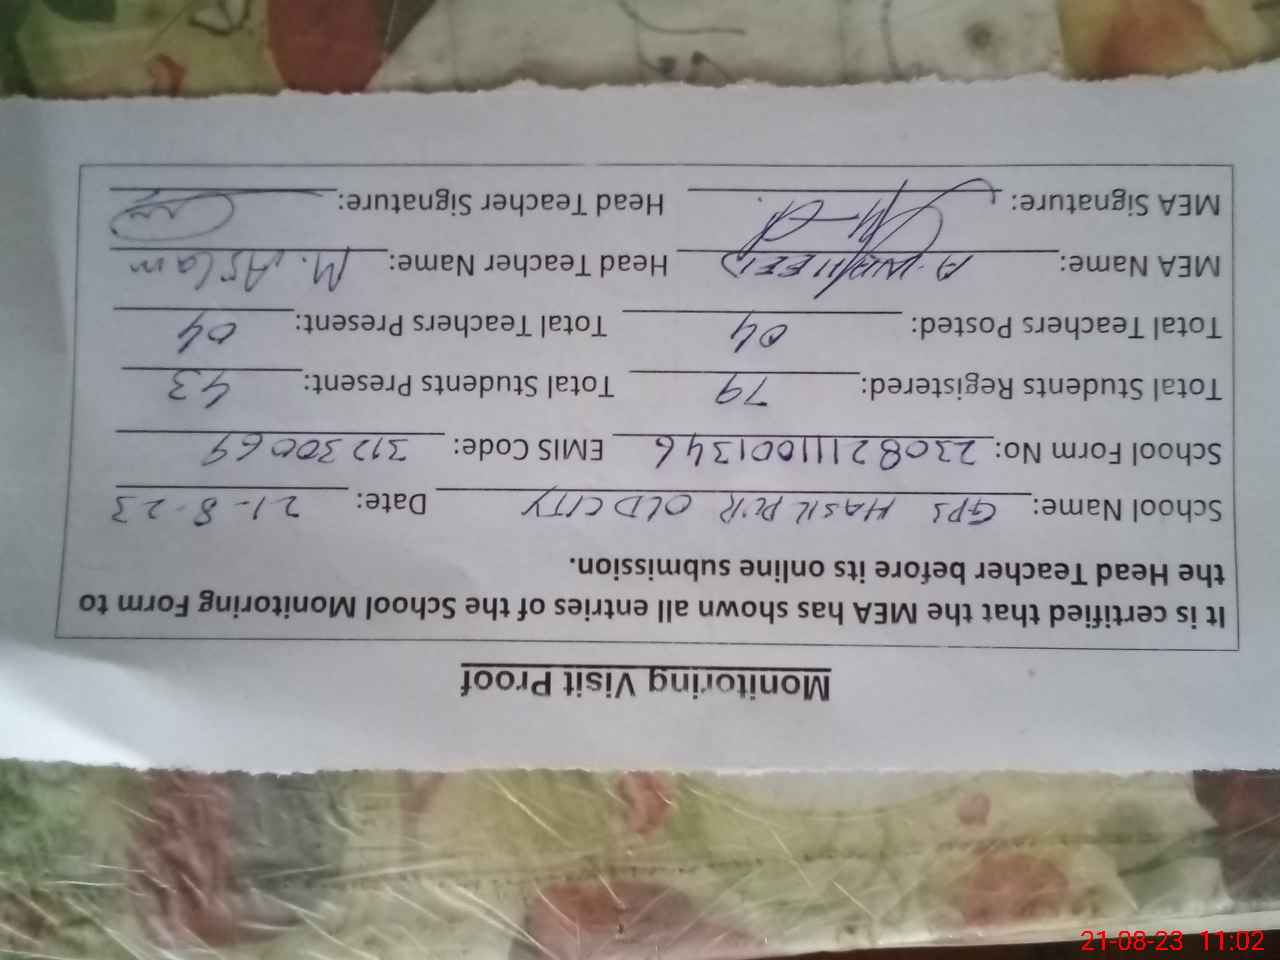 Monitoring Visit Proof
It is certified that the MEA has shown all entries of the School Monitoring Form to
the Head Teacher before its online submission.
School Name: GPS HASIL PUR OLD CITY Date: 21-8-23
School Form No: 23082111001346 EMIS Code: 31230069
Total Students Registered: 79 Total Students Present: 43
Total Teachers Posted: 04 Total Teachers Present: 04
MEA Name: A. WAHEED Head Teacher Name: M. Aslam
MEA Signature: Head Teacher Signature:
21-08-23 11:02